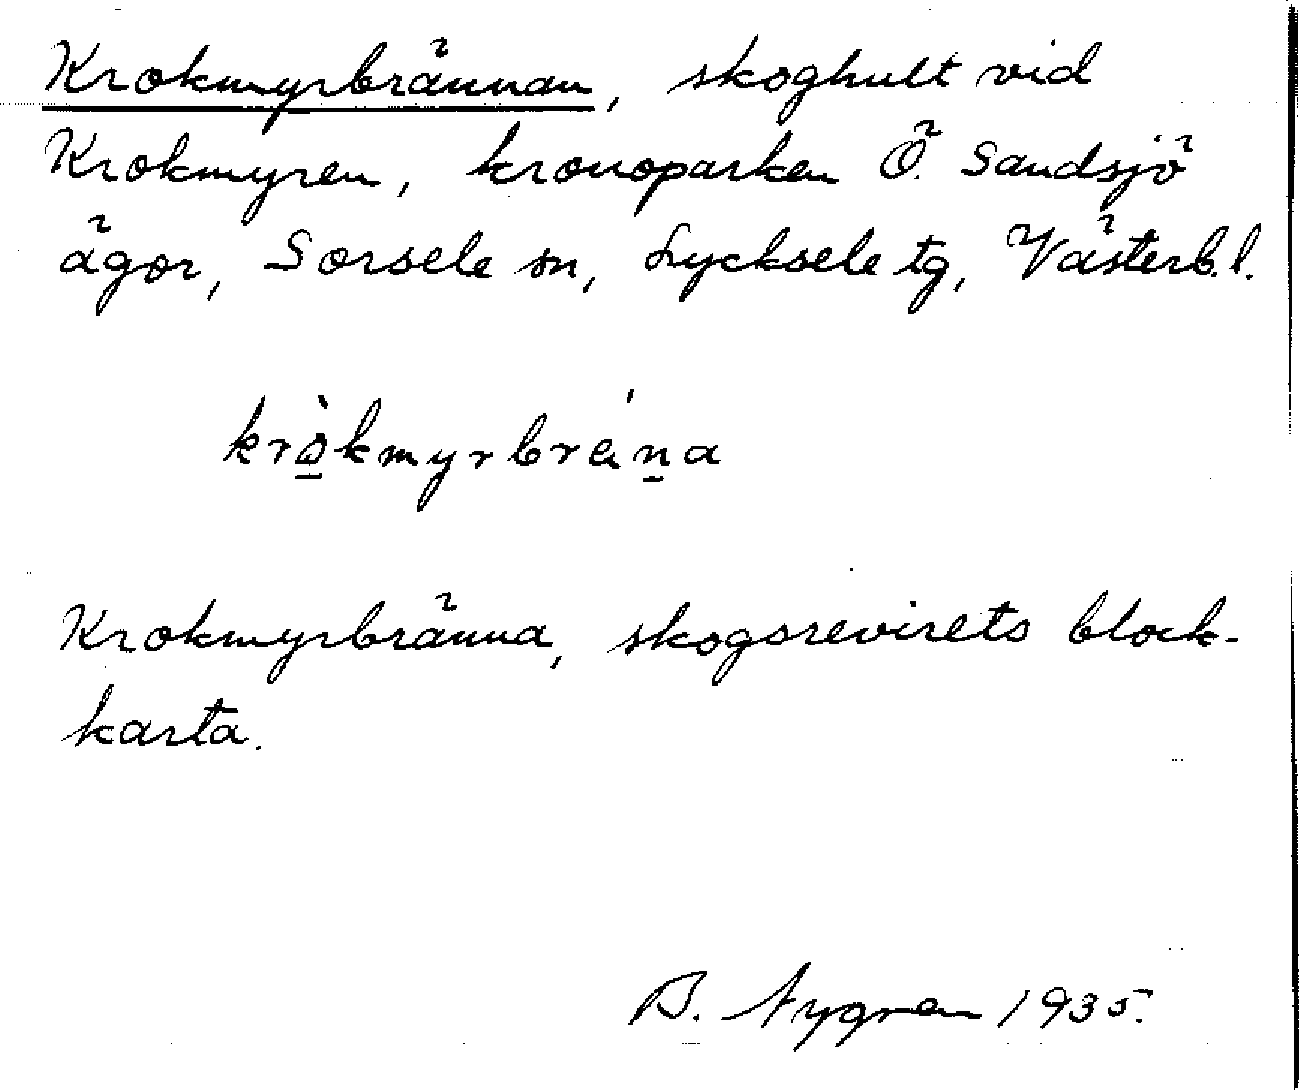 Krokmyrbrännan, skoghult vid
Krokmyren, kronoparken Ö. Sandsjö
ägor, Sorsele sn, Lycksele tg, Västerb.l.
krò̱kmyrbräṉa
Krokmyrbränna, skogsrevirets block-
karta.
B. Nygren 1935.